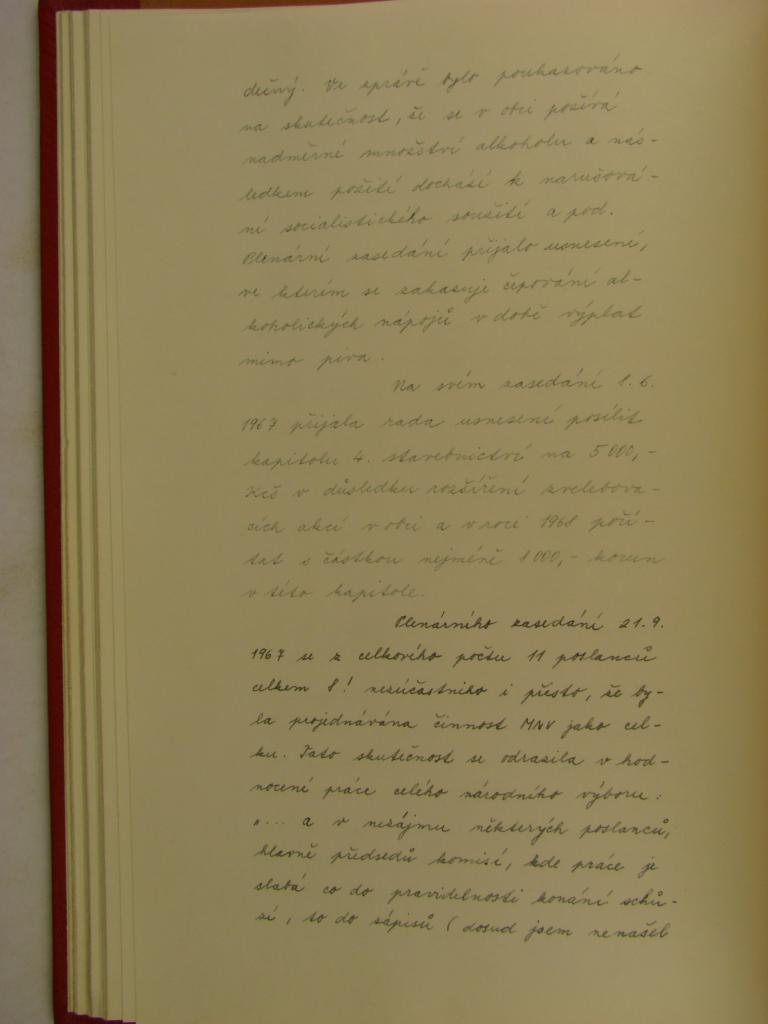 dečný. Ve zprávě bylo poukazováno
na skutečnost, že se v obci požívá
nadměrné množství alkoholu a nás-
ledkem požití dochází k narušová-
ní socialistického soužití a pod.
Plenární zasedání přijalo usnesení,
ve kterém se zakazuje čepování al-
koholických nápojů v době výplat
mimo piva.
Na svém zasedání 1. 6.
1967 přijala rada usnesení posílit
kapitolu 4. stavebnictví na 5 000,-
Kčs v důsledku rozšíření zvelebova-
cích akcí v obci a v roce 1968 počí-
tat s částkou nejméně 8 000,- korun
v této kapitole.
Plenárního zasedání 21. 9.
1967 se z celkového počtu 11 poslanců
celkem 8! nezúčastnilo i přesto, že by-
la projednávána činnost MNV jako cel-
ku. Tato skutečnost se odrazila v hod-
nocení práce celého národního výboru:
"... a v nezájmu některých poslanců,
hlavně předsedů komisí, kde práce je
slabá co do pravidelnosti konání schů-
zí, to do zápisů (dosud jsem nenašel